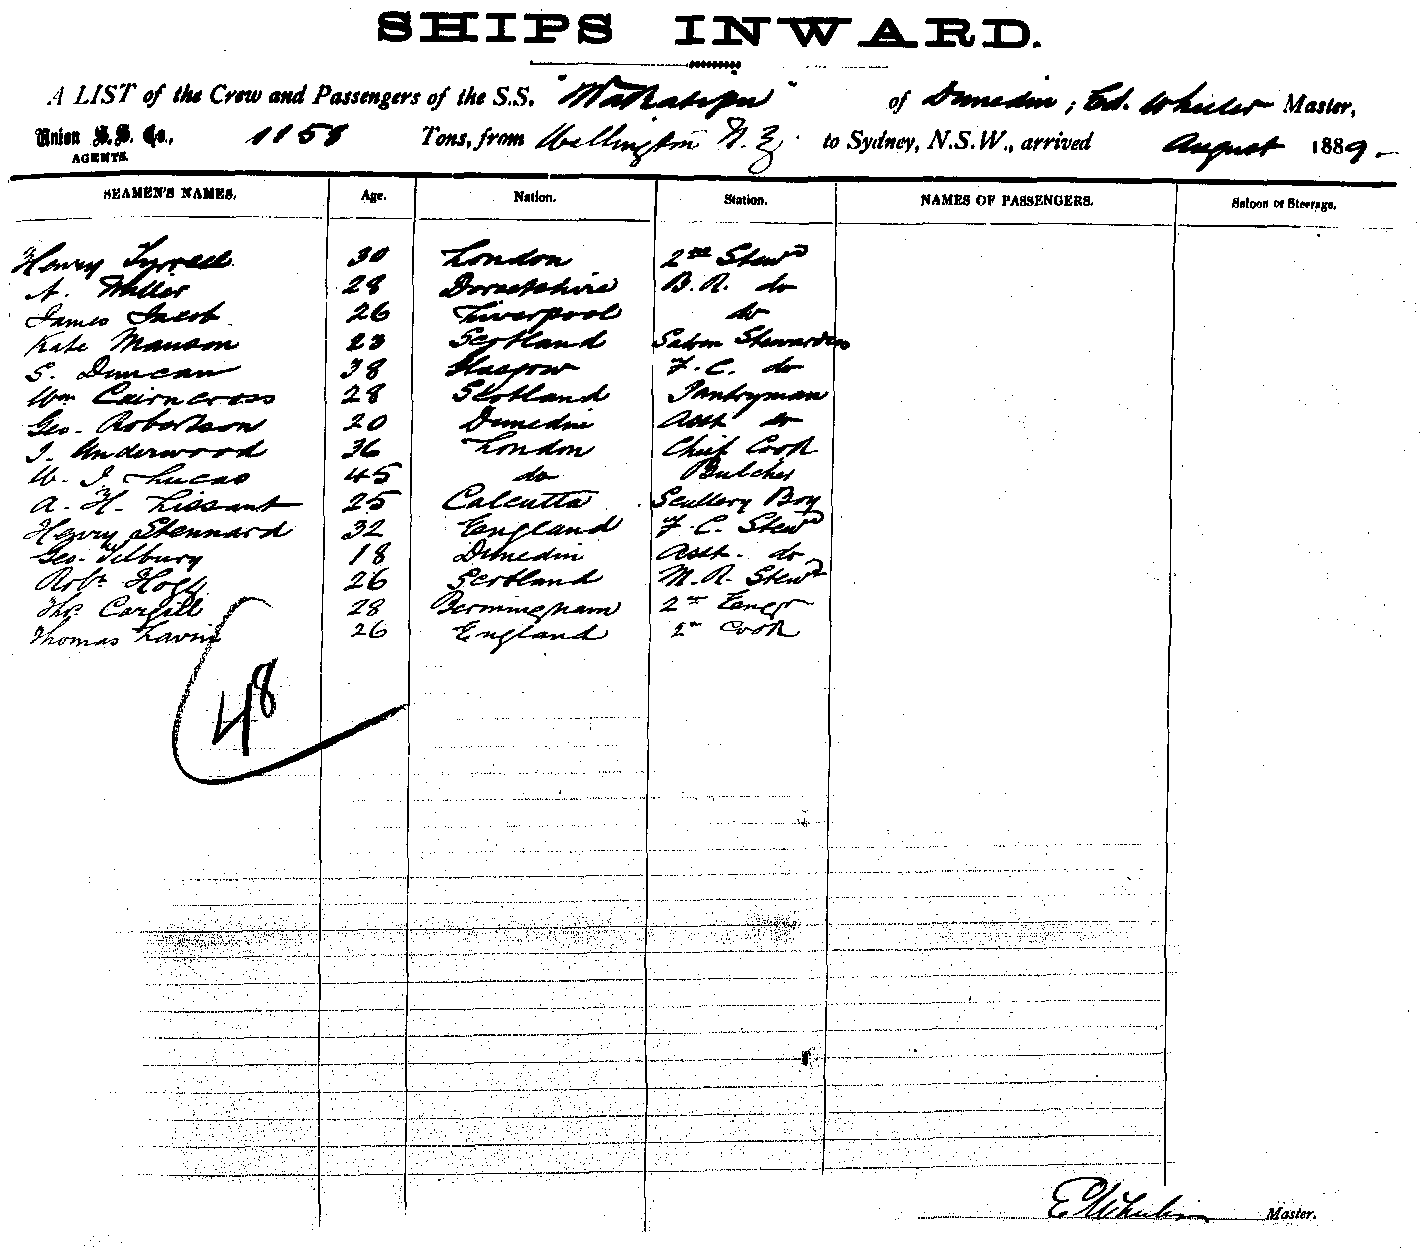 SHIPS INWARD.
A LIST of the Crew and Passengers of the S.S. "Wakatipu" of Dunedin, Ed. Wheeler Master,
Union S.S. Co., 1158 Tons, from Wellington N.Z. to Sydney, N.S.W., arrived August 1889.
AGENTS.
SEAMEN'S NAMES. Age. Nation. Station. NAMES OF PASSENGERS. Saloon or Steerage.
Henry Tyrrell 30 London 2nd Stewd
A. Miller 28 Dorsetshire B.R. do
James Jacob 26 Liverpool do
Kate Manson 23 Scotland Saloon Stewardess
S. Duncan 38 Glasgow F.C. do
Wm Cairncross 28 Scotland Pantryman
Geo. Robertson 20 Dunedin Asst do
J. Underwood 36 London Chief Cook
W. J. Lucas 45 do Butcher
A. H. Lissant 25 Calcutta Scullery Boy
Henry Stennard 32 England F.C. Stewd
Geo. Tilbury 18 Dunedin Asst. do
Robt Hogg 26 Scotland M.R. Stewd
Thos Cargill 28 Bermingham 2nd
Thomas Lavin 26 England 2nd Cook
48
E Wheeler Master.